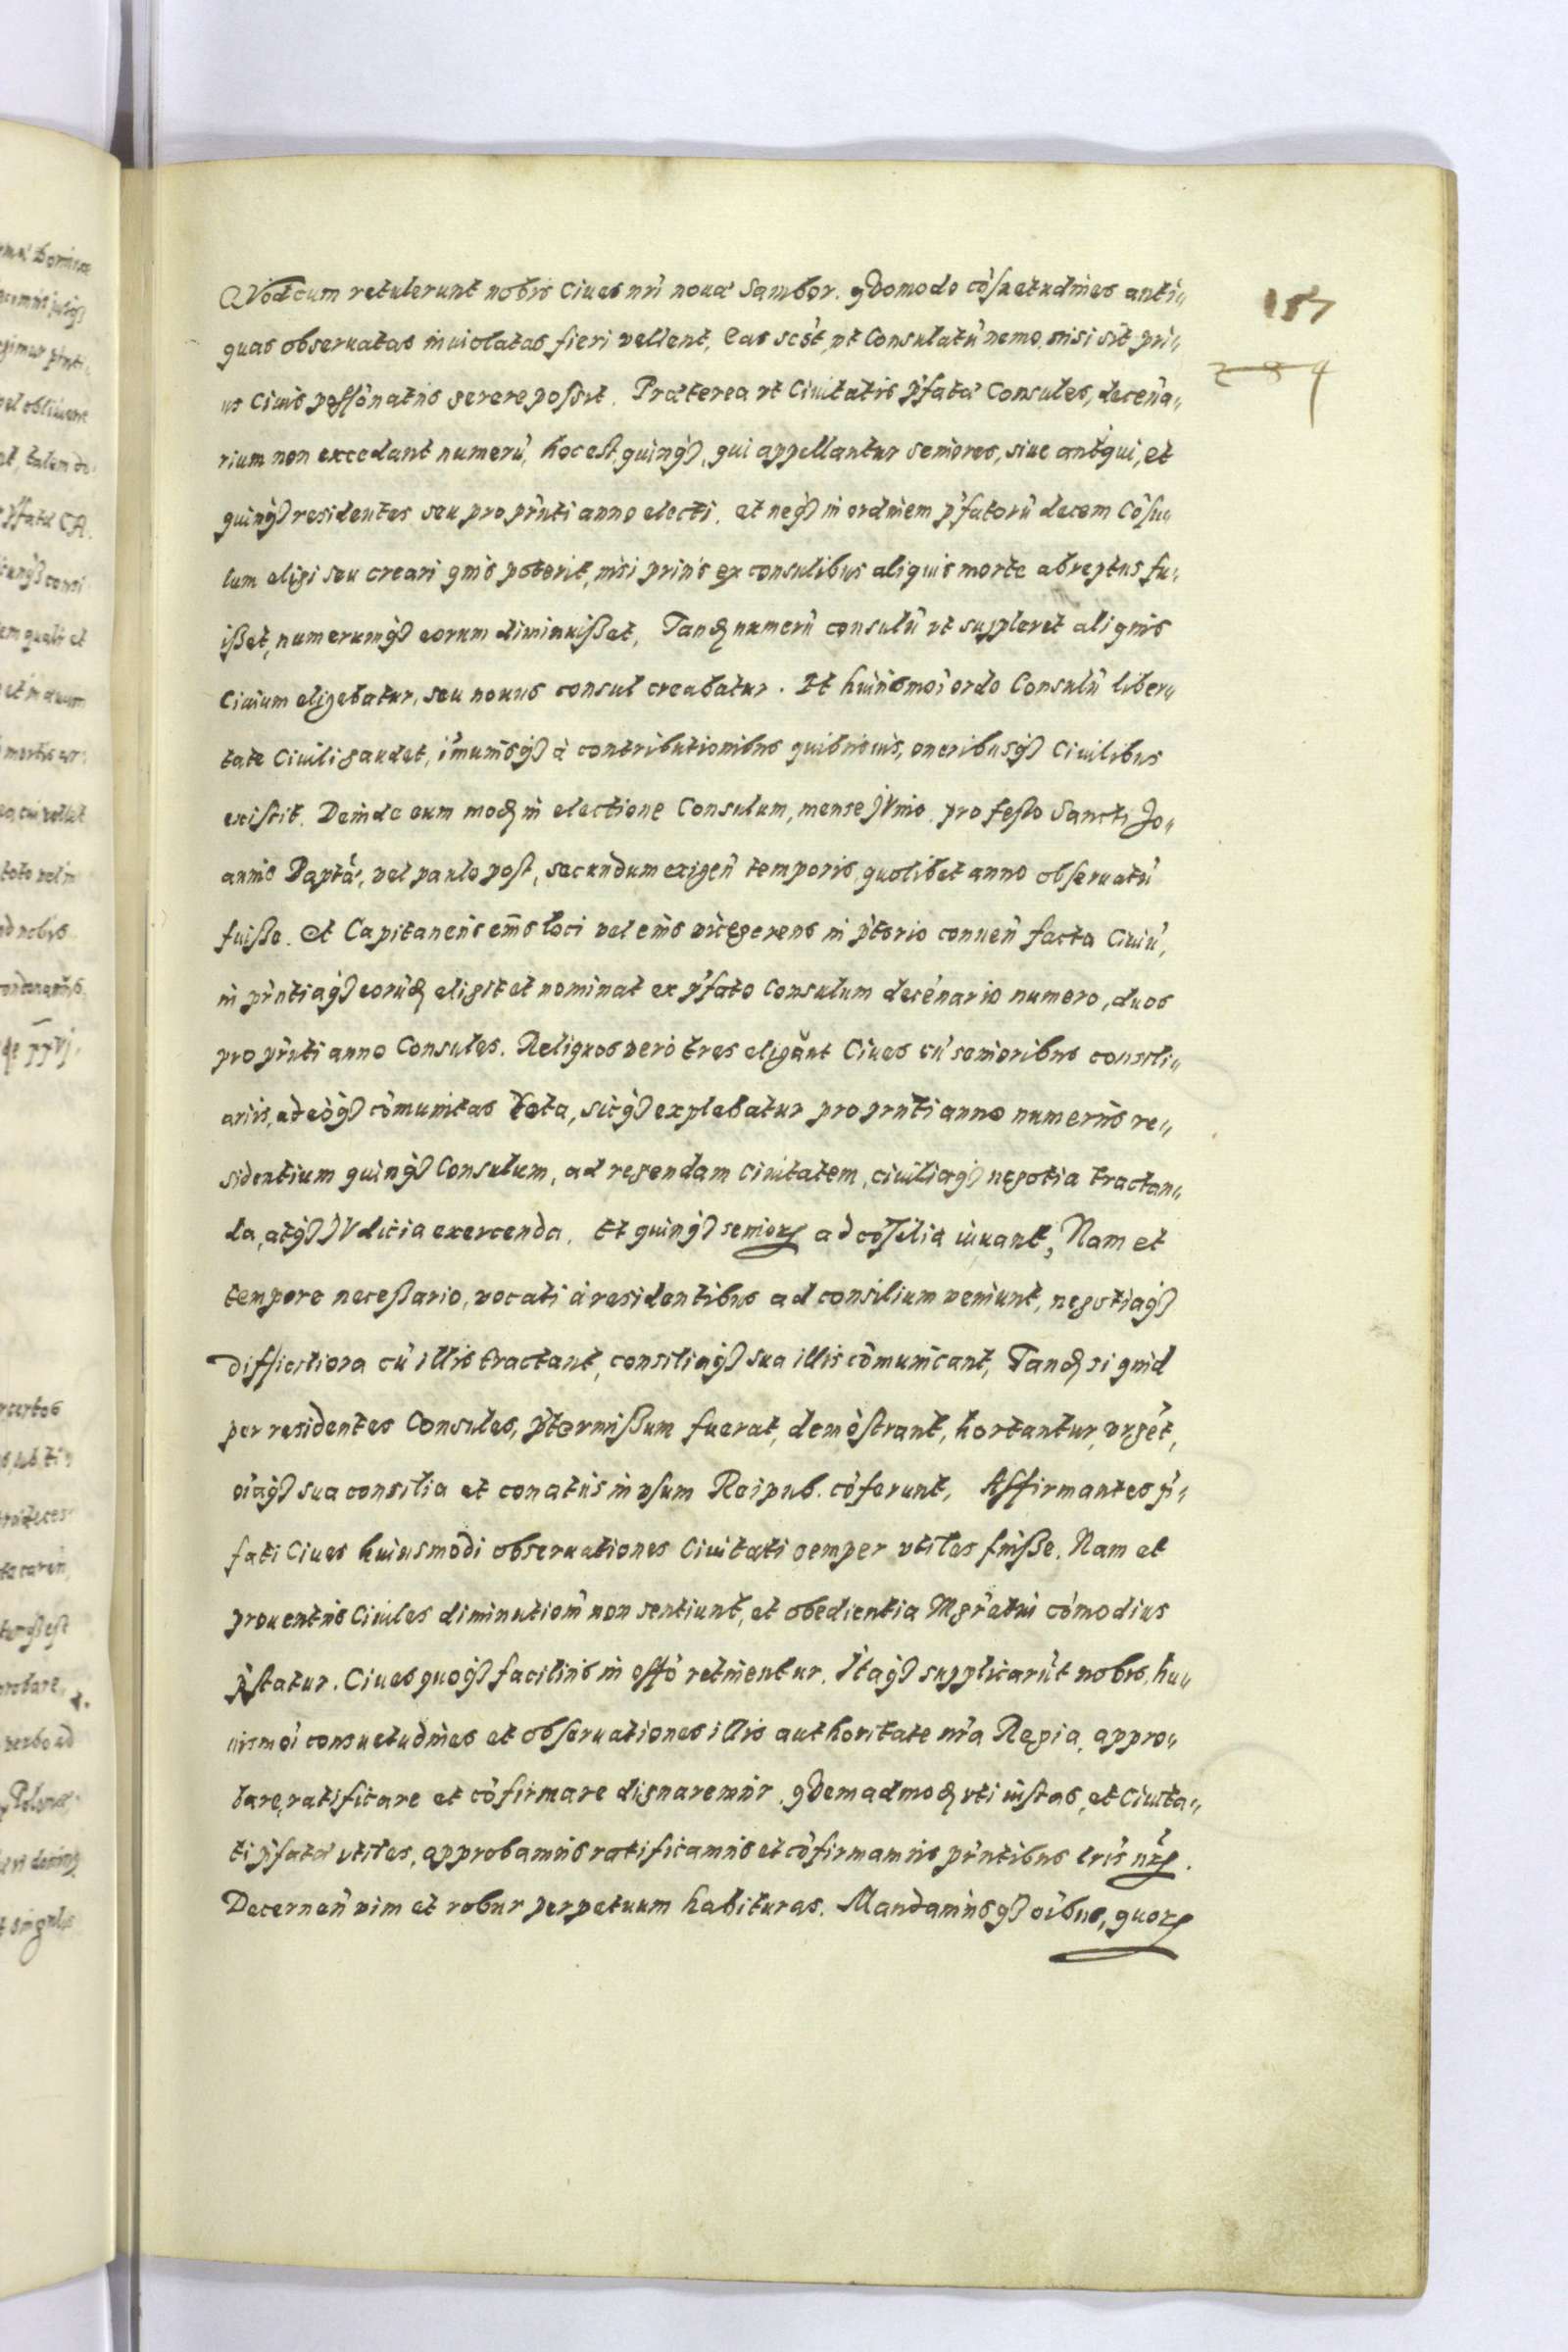 157
QVod cum retulerunt nobis Ciues nri nouæ Sambor. qdomodo cosuetudines anti„
284
quas obseruatas inuiolatas fieri vellent, Eas sclt, vt Consulatu nemo, nisi sit pri„
us Ciuis possonatus gerere possit. Præterea vt Ciuitatis pfatæ Consules, decena„
rium non excedant numeru, hoc est, quinq, qui appellantur seniores, siue antiqui, et
quinq residentes seu pro pnti anno electi. et neq in ordinem pfatoru decem Cosu„
lum eligi seu creari quis poterit, nisi prius ex consulibus aliquis morte abreptus fu„
ißet, numerumq eorum diminuißet, Tandem numeru consulu vt suppleret aliquis
Ciuium eligebatur, seu nouus consul creabatur. Et huiusmoi ordo Consulu liber„
tate Ciuili gaudet, imunisq à contributionibus quibusuis, oneribusq Ciuilibus
existit. Deinde eum modum in electione Consulum, mense JVnio, pro festo Sancti Jo„
annis Baptæ, vel paulo post, secundum exigen temporis, quolibet anno obseruatu
fuiße. Et Capitaneus eius loci vel eius vicegerens in ptorio conuen facta Ciuiu,
in pntiaq eorundem eligit et nominat ex pfato Consulum decenario numero, duos
pro pnti anno Consules. Reliquos vero tres eligunt Ciues cu senioribus consili„
ariis, adeoq comunitas tota, sicq explebatur pro pnti anno numerus re„
sidentium quinq Consulum, ad regendam Ciuitatem, ciuiliaq negotia tractan„
da, atq JVdicia exercenda. Et quinq seniores ad cosilia iuuant, Nam et
tempore neceßario, vocati à residentibus ad consilium veniunt, negotiaq
difficiliora cu illis tractant, consiliaq sua illis comunicant, Tandem si quid
per residentes Consules, ptermißum fuerat, demostrant, hortantur, vrget,
oiaq sua consilia et conatus in vsum Reipub. coferunt, Affirmantes p„
fati Ciues huiusmodi obseruationes Ciuitati semper vtiles fuiße. Nam et
prouentus Ciuiles diminutiom non sentiunt, et obedientia Mgratui comodius
pstatur. Ciues quoq facilius in offo retinentur. Itaq supplicarut nobis, hu„
iusmoi consuetudines et obseruationes illis authoritate nra Regia, appro„
bare, ratificare et cofirmare dignaremur. qdemadmodum vti iustas, et Ciuita„
ti pfatæ vtiles, approbamus ratificamus et cofirmamus pntibus lris nris.
Decernen vim et robur perpetuum habituras. Mandamusq oibus, quorum